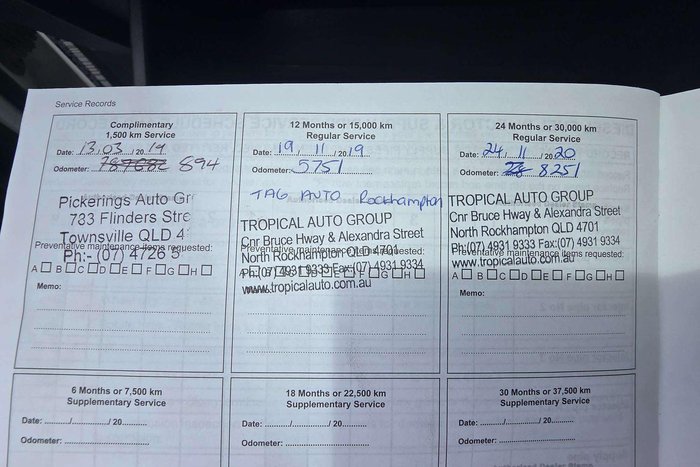 Service Records
Complimentary
1,500 km Service
Date: 13.03 / 20 19
Odometer: 894
Pickerings Auto Gr
783 Flinders Stre
Townsville QLD 4
Preventative maintenance items requested:
Ph:- (07) 4726 5
A B C D E F G H
Memo:
12 Months or 15,000 km
Regular Service
Date: 19 / 11 / 20 19
Odometer: 5751
TAG AUTO Rockhampton
TROPICAL AUTO GROUP
Cnr Bruce Hwy & Alexandra Street
Preventative maintenance items requested:
North Rockhampton QLD 4701
Ph:(07) 4931 9333 Fax:(07) 4931 9334
A B C D E F G H
www.tropicalauto.com.au
24 Months or 30,000 km
Regular Service
Date: 24 / 11 / 20 20
Odometer: 8251
TROPICAL AUTO GROUP
Cnr Bruce Hwy & Alexandra Street
North Rockhampton QLD 4701
Ph:(07) 4931 9333 Fax:(07) 4931 9334
Preventative maintenance items requested:
www.tropicalauto.com.au
A B C D E F G H
Memo:
6 Months or 7,500 km
Supplementary Service
Date: / / 20
Odometer:
18 Months or 22,500 km
Supplementary Service
Date: / / 20
Odometer:
30 Months or 37,500 km
Supplementary Service
Date: / / 20
Odometer: